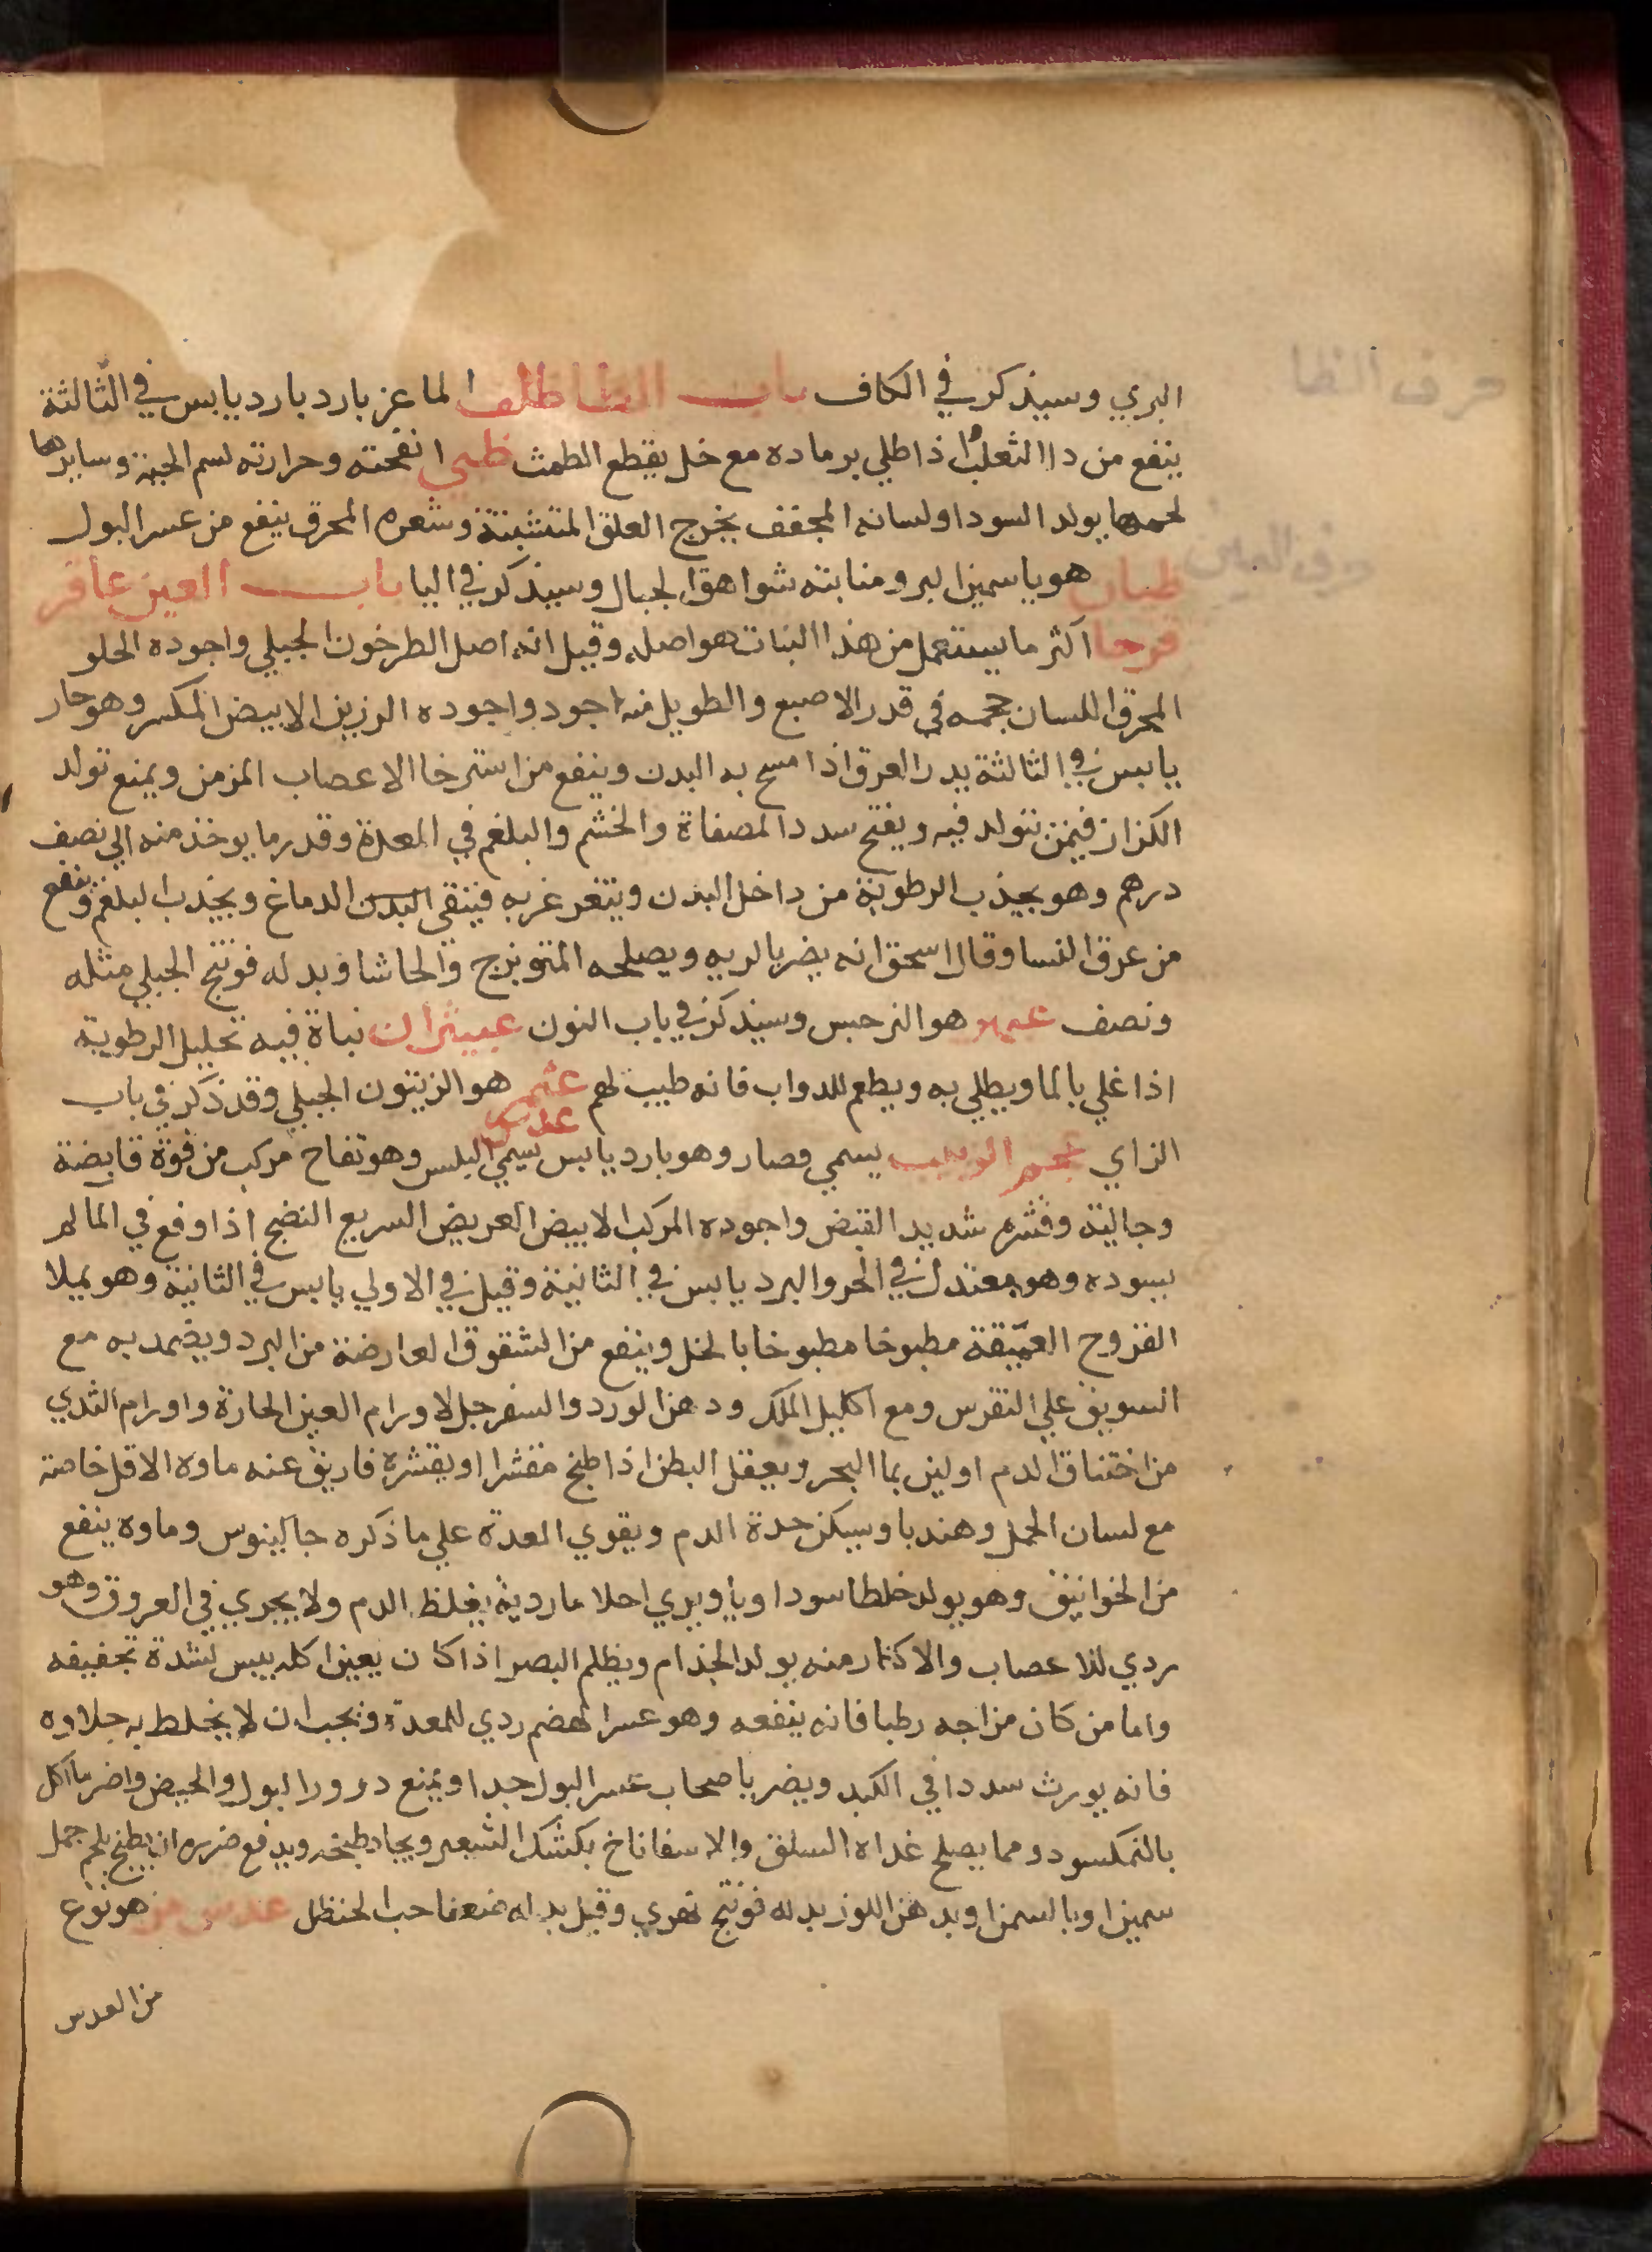 حرف الظا
البري وسيذكر في الكاف باب الظا ظلف الماعز بارد بارد يابس في الثالثة
ينفع من دا الثعلب اذا طلي برماده مع خل يقطع الطمث ظبي انفحته وحرارته لسم الحية وسايرها
لحمها يولد السودا ولسانه المجفف يخرج العلق المتشبثة وشعره المحرق ينفع من عسر البول
حرف العين
ظيان هو ياسمين البر ومنابته شواهق الجبال وسيذكر في اليا باب العين عاقر
قرحا اكثر ما يستعمل من هذا النبات هو اصله وقيل انه اصل الطرخون الجبلي واجوده الحلو
المحرق اللسان حجمه في قدر الاصبع والطويل منه اجود واجوده الرزين الابيض المكسر وهو حار
يابس في الثالثة يدر العرق اذا مسح به البدن وينفع من استرخا الاعصاب المزمن ويمنع تولد
الكزاز فيمن يتولد فيه ويفتح سدد المصفاة والخشم والبلغم في المعدة وقدر ما يوخذ منه الي نصف
درهم وهو يجذب الرطوبة من داخل البدن ويتغرغر به فينقي البدن الدماغ ويجذب البلغم وينفع
من عرق النسا وقال اسحق انه يضر بالريه ويصلحه المتوبزج والحاشا وبدله فوتنج الجبلي مثله
ونصف عبهر هو النرجس وسيذكر في باب النون عبيثران نباة فيه تحليل الرطوبة
اذا غلي بالما ويطلي به ويطعم للدواب فانه طيب لهم عتم هو الزيتون الجبلي وقد ذكر في باب
الزاي عجم الزبيب يسمي فصار وهو بارد يابس عدس يسمي البلس وهو تفاح مركب من قوة قابضة
وجالية وقشره شديد القبض واجوده المركب الابيض العريض السريع النضج اذا وقع في الما لم
يسوده وهو معتدل في الحر والبرد يابس في الثانية وقيل في الاولي يابس في الثانية وهو يملا
القروح العميقة مطبوخا مطبوخا بالخل وينفع من الشقوق العارضة من البرد ويضمد به مع
السويق علي النقرس ومع اكليل الملك ودهن الورد والسفرجل لاورام العين الحارة واورام الثدي
من اختناق الدم او لبن بما البحر ويعقل البطن اذا طبخ مقشرا او بقشره فاريق عنه ماوه الاول خاصة
مع لسان الحمل وهندبا ويسكن حدة الدم ويقوي المعدة علي ما ذكره جالينوس وماوه ينفع
من الخوانيق وهو يولد خلطا سوداويا ويري احلاما ردية يغلظ الدم ولا يجري في العروق وهو
ردي للاعصاب والاكثار منه يولد الجذام ويظلم البصر اذا كان بعين اكله يبس لشدة تجفيفه
واما من كان مزاجه رطبا فانه ينفعه وهو عسر الهضم ردي للمعدة ويجب ان لا يخلط به حلاوه
فانه يورث سددا في الكبد ويضر باصحاب عسر البول جدا ويمنع درور البول والحيض واضر ما اكل
بالنمكسود ومما يصلح غداه السلق والاسفاناخ بكشك الشعير ويجاد طبخه ويدفع ضرره ان يطبخ بلحم حمل
سمين او بالسمن او بدهن اللوز بدله فوتنج نهري وقيل بدله ضعفا حب الحنظل عدس مر هو نوع
من العدس